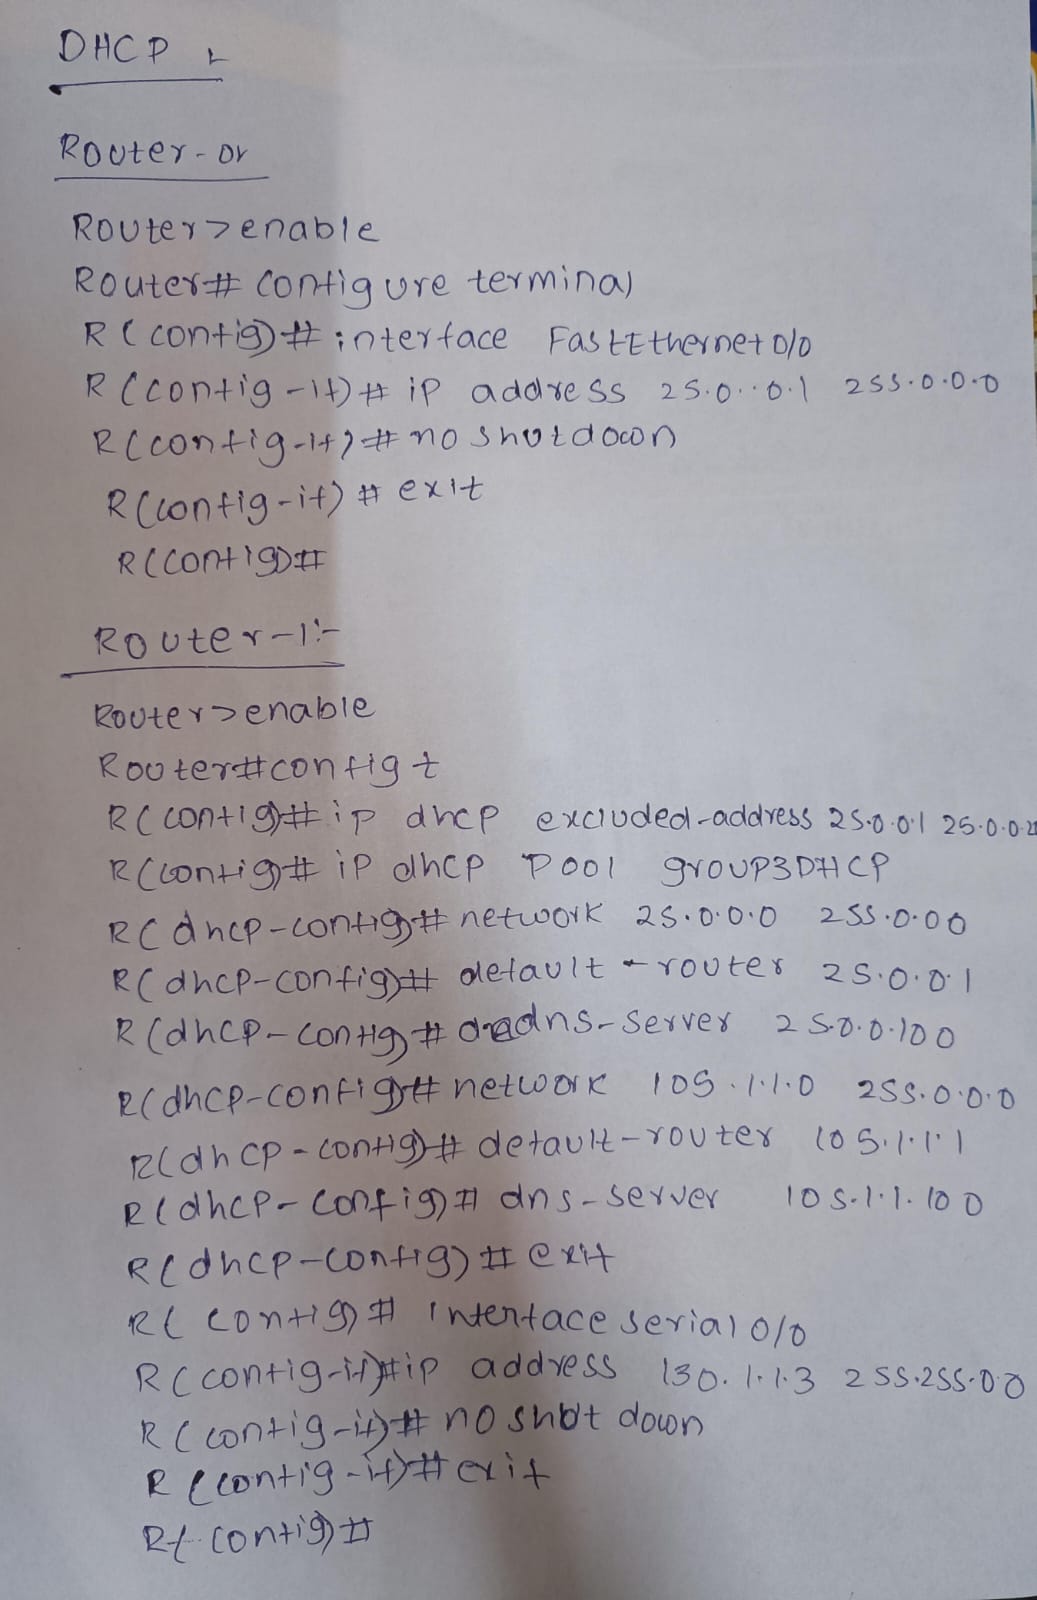 DHCP
Router-0r
Router>enable
Router# configure terminal
R(config)# interface FastEthernet0/0
R(config-if)# ip address 25.0..0.1 255.0.0.0
R(config-if)# no shutdown
R(config-if)# exit
R(config)#
Router-1:-
Router>enable
Router#config t
R(config)# ip dhcp excluded-address 25.0.0.1 25.0.0.
R(config)# ip dhcp pool group3DHCP
R(dhcp-config)# network 25.0.0.0 255.0.00
R(dhcp-config)# default-router 25.0.0.1
R(dhcp-config)# dns-server 25.0.0.100
R(dhcp-config)# network 105.1.1.0 255.0.0.0
R(dhcp-config)# default-router 105.1.1.1
R(dhcp-config)# dns-server 105.1.1.100
R(dhcp-config)# exit
R(config)# interface serial0/0
R(config-if)#ip address 130.1.1.3 255.255.0.0
R(config-if)# no shut down
R(config-if)# exit
R(config)#